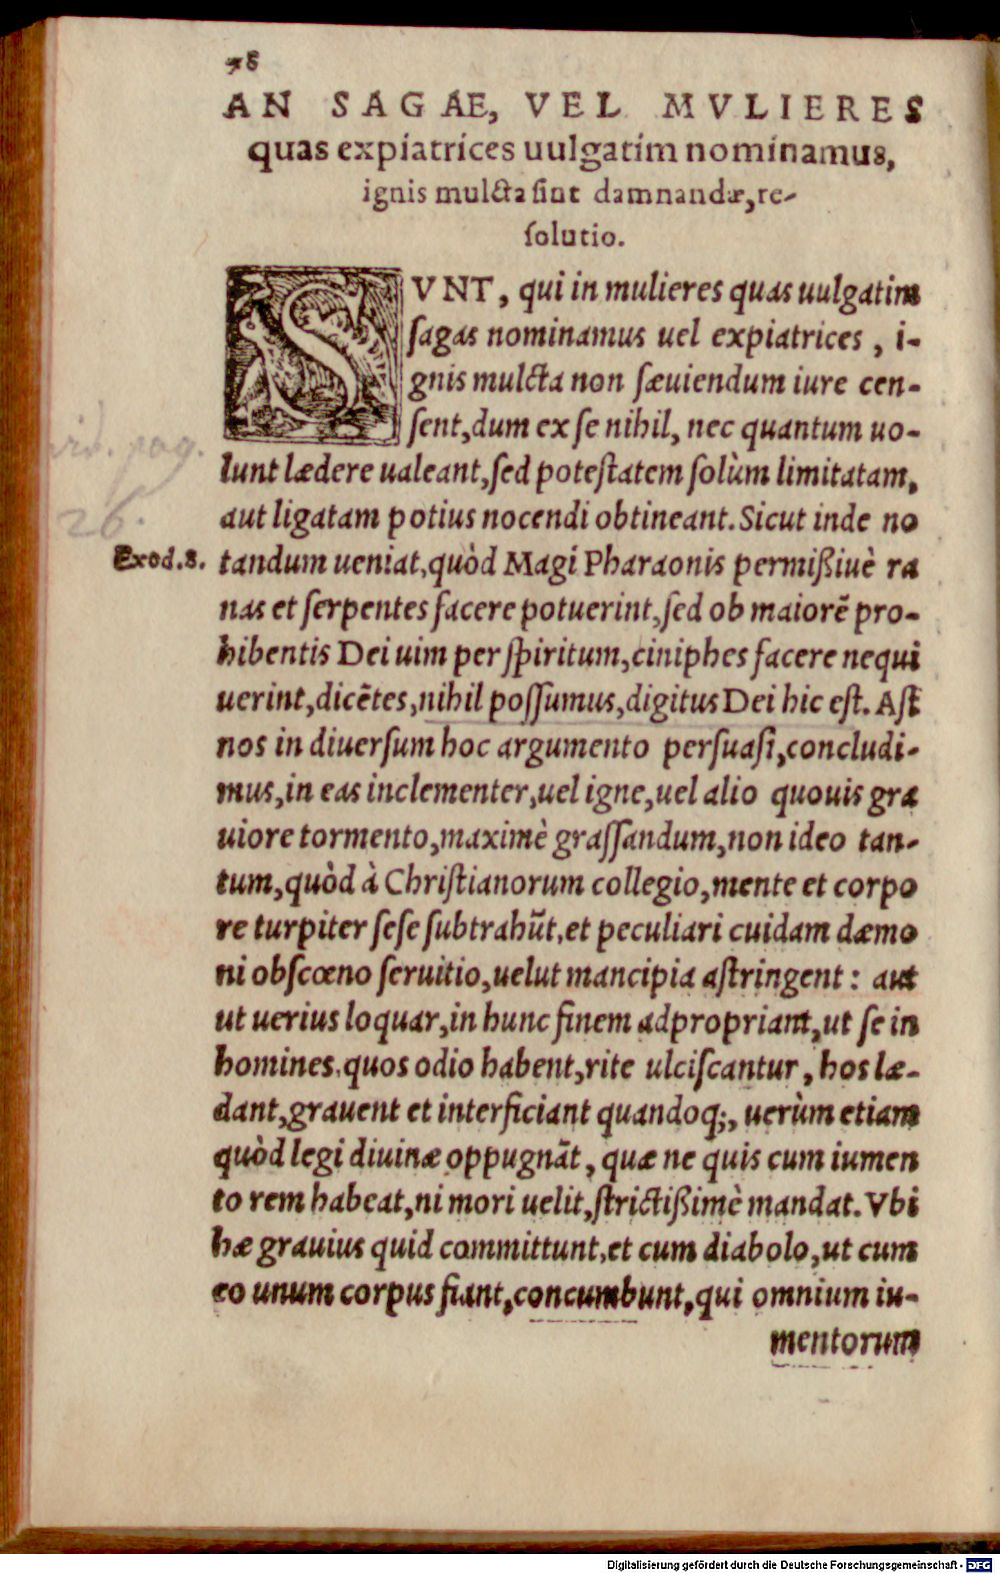 78
AN SAGAE, VEL MVLIERES
quas expiatrices uulgatim nominamus,
ignis mulcta sint damnandæ, re-
solutio.
SVNT, qui in mulieres quas uulgatim
sagas nominamus uel expiatrices, i-
gnis mulcta non sæuiendum iure cen-
sent, dum ex se nihil, nec quantum uo-
lunt lædere ualeant, sed potestatem solùm limitatam,
aut ligatam potius nocendi obtineant. Sicut inde no
Exod. 8. tandum ueniat, quòd Magi Pharaonis permißiuè ra
nas et serpentes facere potuerint, sed ob maiorē pro-
hibentis Dei uim per spiritum, ciniphes facere nequi
uerint, dicētes, nihil possumus, digitus Dei hic est. Ast
nos in diuersum hoc argumento persuasi, concludi-
mus, in eas inclementer, uel igne, uel alio quouis gra
uiore tormento, maximè grassandum, non ideo tan-
tum, quòd à Christianorum collegio, mente et corpo
re turpiter sese subtrahūt, et peculiari cuidam dæmo
ni obscœno seruitio, uelut mancipia astringent: aut
ut uerius loquar, in hunc finem adpropriant, ut se in
homines, quos odio habent, rite ulciscantur, hos læ-
dant, grauent et interficiant quandoq;, uerùm etiam
quòd legi diuinæ oppugnāt, quæ ne quis cum iumen
to rem habeat, ni mori uelit, strictißimè mandat. Vbi
hæ grauius quid committunt, et cum diabolo, ut cum
eo unum corpus fiant, concumbunt, qui omnium iu-
mentorum
vid. pag.
26.
Digitalisierung gefördert durch die Deutsche Forschungsgemeinschaft - DFG